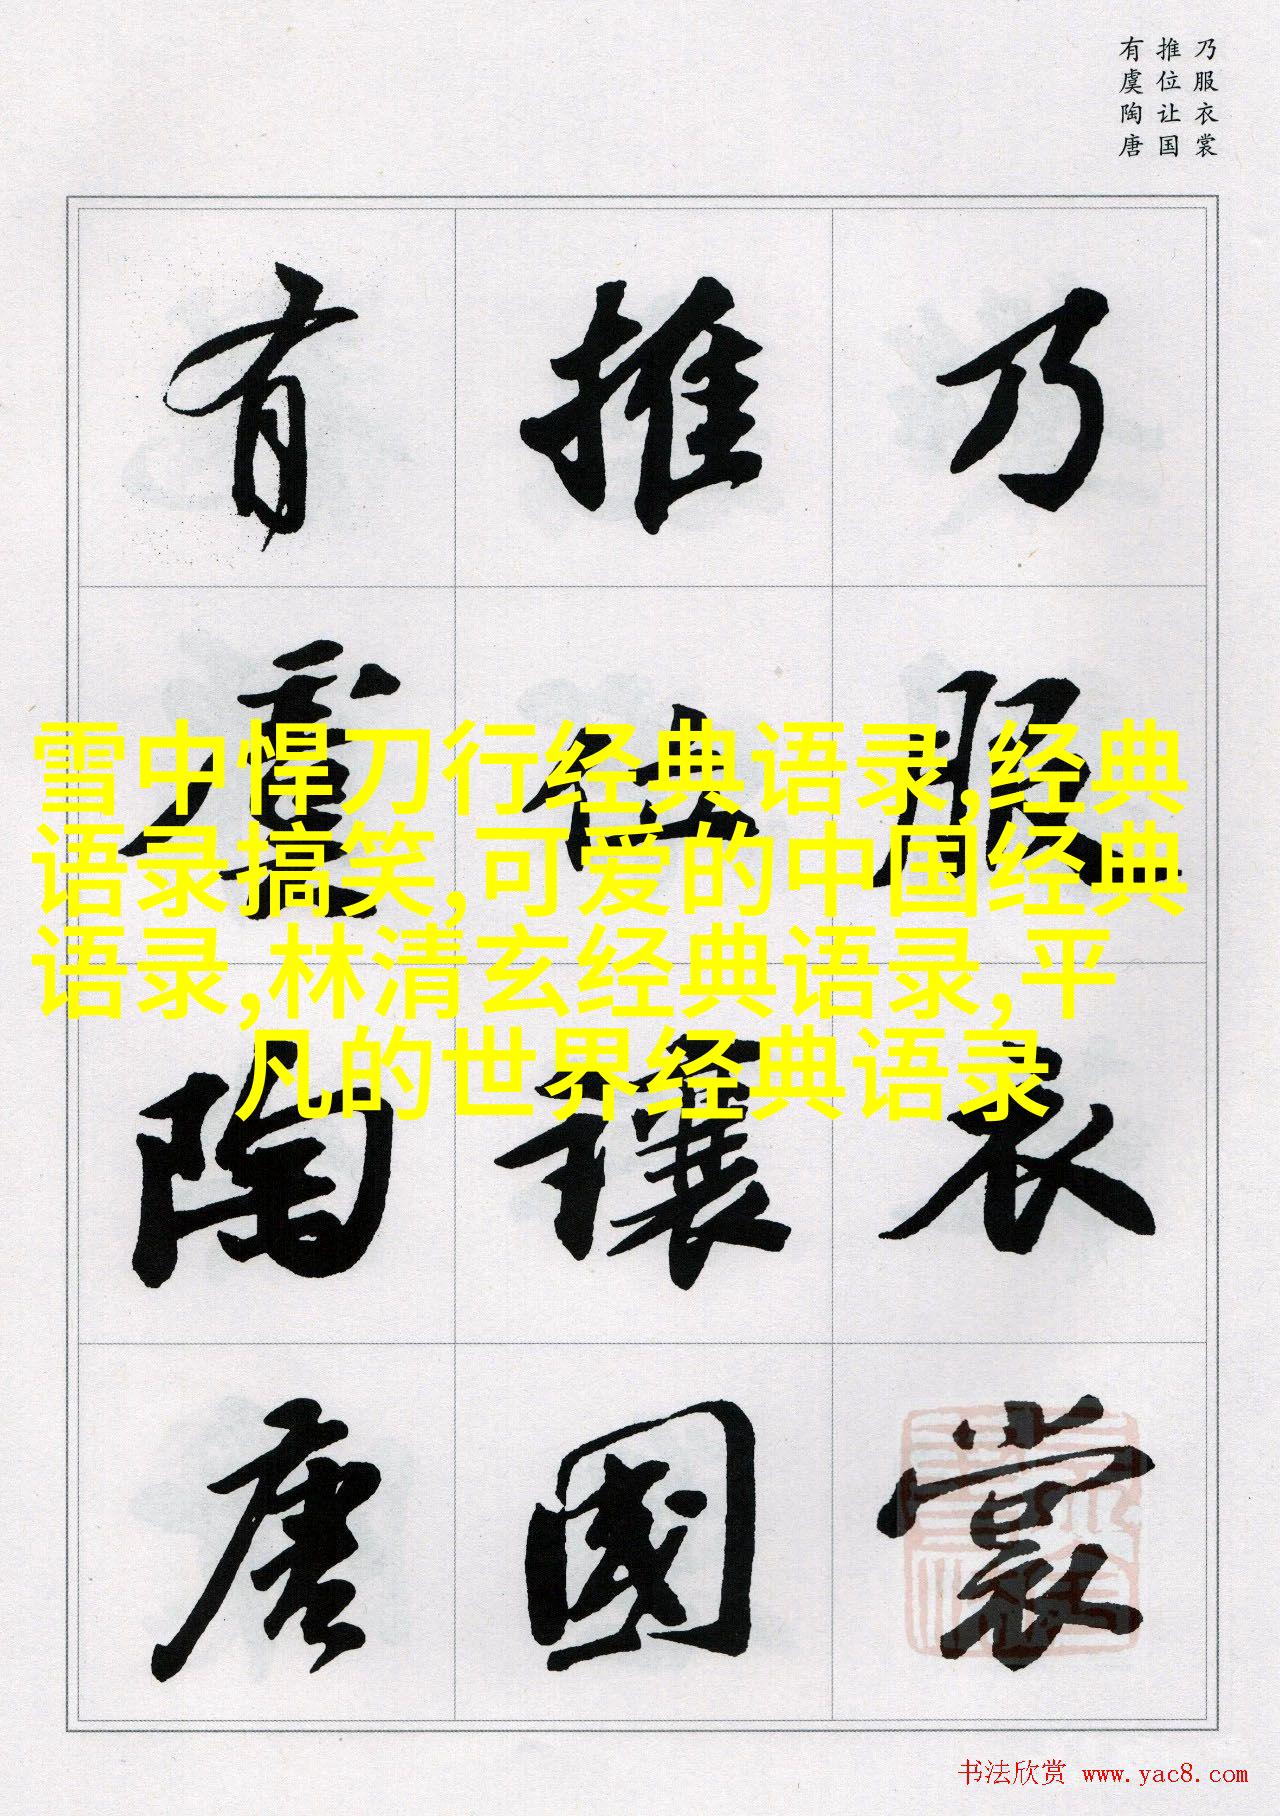 乃服衣裳
推位让国
有虞陶唐
乃服衣裳
推位讓國
有虞陶唐
雪中悍刀行经典语录,经典
语录搞笑,可爱的中国经典
语录,林清玄经典语录,平
凡的世界经典语录
书法欣赏 www.yac8.com